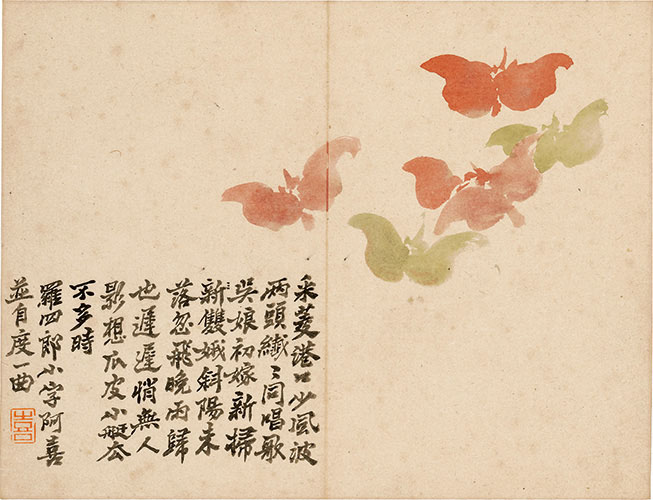 采菱港口少風波
兩頭纖〻同唱歌
吳娘初嫁新掃
新雙娥斜陽未
落忽飛晚雨歸
也遲遲悄無人
影想瓜皮小艇去
不多時
羅四郎小字阿喜
並自度一曲